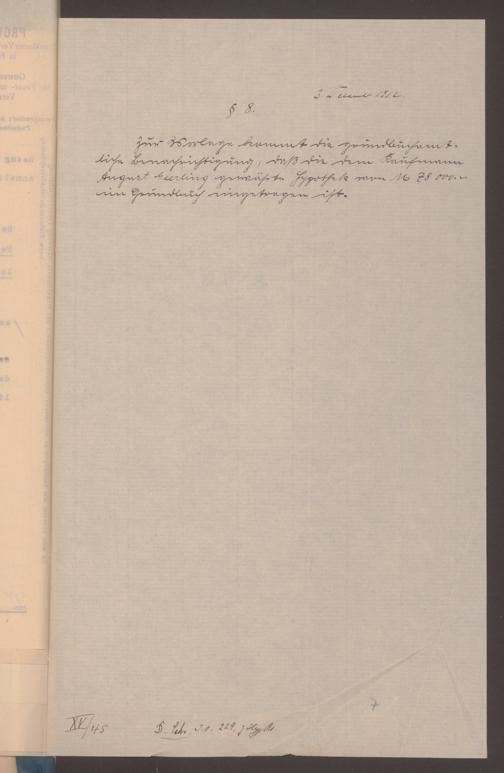 § 8.
Zur Vorlage kommt die grundbuchamt-
liche Benachrichtigung, daß die dem Kaufmann
August gewährte Hypothek von M 78 000.-
im Grundbuch eingetragen ist.
7
XV/45
229.